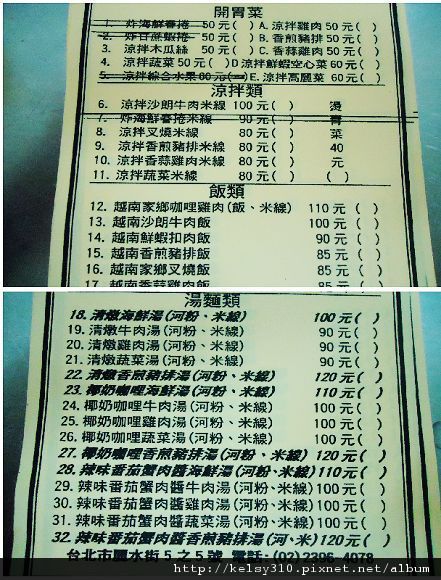 開胃菜
1. 炸海鮮春捲 50元( ) A. 涼拌雞肉 50元( )
2. 炸甘蔗蝦捲 50元( ) B. 香煎豬排 50元( )
3. 涼拌木瓜絲 50元( ) C. 香蒜雞肉 50元( )
4. 涼拌蔬菜 50元( ) D 涼拌鮮蝦空心菜 60元( )
5. 涼拌綜合水果 60元( ) E. 涼拌高麗菜 60元( )
涼拌類
6. 涼拌沙朗牛肉米線 100元( ) 燙
7. 炸海鮮春捲米線 90元( ) 青
8. 涼拌叉燒米線 80元( ) 菜
9. 涼拌香煎豬排米線 80元( ) 40
10. 涼拌香蒜雞肉米線 80元( ) 元
11. 涼拌蔬菜米線 80元( ) ( )
飯類
12. 越南家鄉咖哩雞肉(飯、米線) 110元( )
13. 越南沙朗牛肉飯 100元( )
14. 越南鮮蝦扣肉飯 90元( )
15. 越南香煎豬排飯 85元( )
16. 越南家鄉叉燒飯 85元( )
17. 越南香蒜雞肉飯 85元( )
湯麵類
18. 清燉海鮮湯(河粉、米線) 100元( )
19. 清燉牛肉湯(河粉、米線) 90元( )
20. 清燉雞肉湯(河粉、米線) 90元( )
21. 清燉蔬菜湯(河粉、米線) 90元( )
22. 清燉香煎豬排湯(河粉、米線) 120元( )
23. 椰奶咖哩海鮮湯(河粉、米線) 110元( )
24. 椰奶咖哩牛肉湯(河粉、米線) 100元( )
25. 椰奶咖哩雞肉湯(河粉、米線) 100元( )
26. 椰奶咖哩蔬菜湯(河粉、米線) 100元( )
27. 椰奶咖哩香煎豬排湯(河粉、米線) 120元( )
28. 辣味番茄蟹肉醬海鮮湯(河粉、米線) 110元( )
29. 辣味番茄蟹肉醬牛肉湯(河粉、米線) 100元( )
30. 辣味番茄蟹肉醬雞肉湯(河粉、米線) 100元( )
31. 辣味番茄蟹肉醬蔬菜湯(河粉、米線) 100元( )
32. 辣味番茄蟹肉醬香煎豬排湯(河粉、米) 120元( )
台北市麗水街5之5號 電話:(02)2396-4078
http://kelsy310.pixnet.net/album